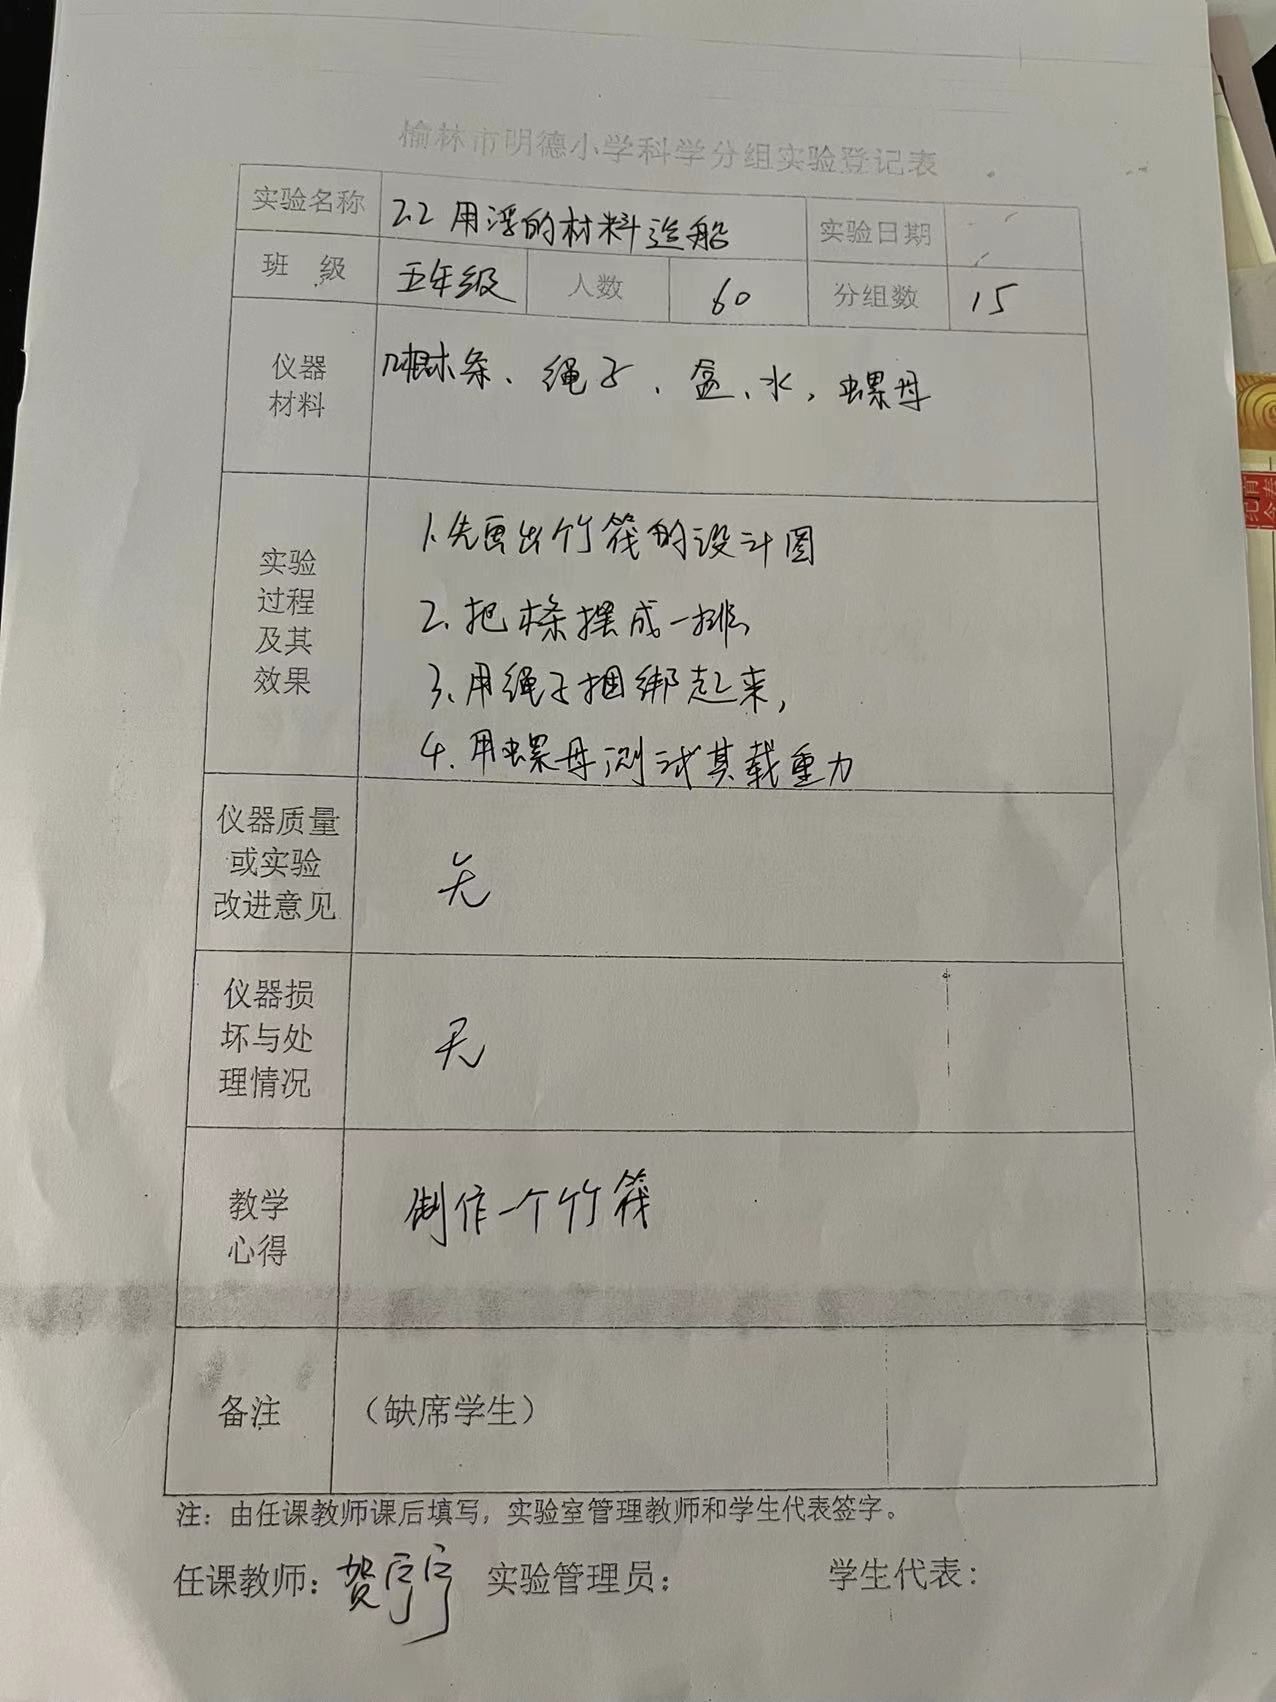 榆林市明德小学科学分组实验登记表
实验名称 2.2 用浮的材料造船 实验日期
班 级 五年级 人数 60 分组数 15
仪器材料 几根木条、绳子、盆、水，螺母
实验过程及其效果
1. 先画出竹筏的设计图
2. 把木条摆成一排
3. 用绳子捆绑起来，
4. 用螺母测试其载重力
仪器质量或实验改进意见 无
仪器损坏与处理情况 无
教学心得 制作一个竹筏
备注 （缺席学生）
注：由任课教师课后填写，实验室管理教师和学生代表签字。
任课教师：贺宁宁 实验管理员： 学生代表：